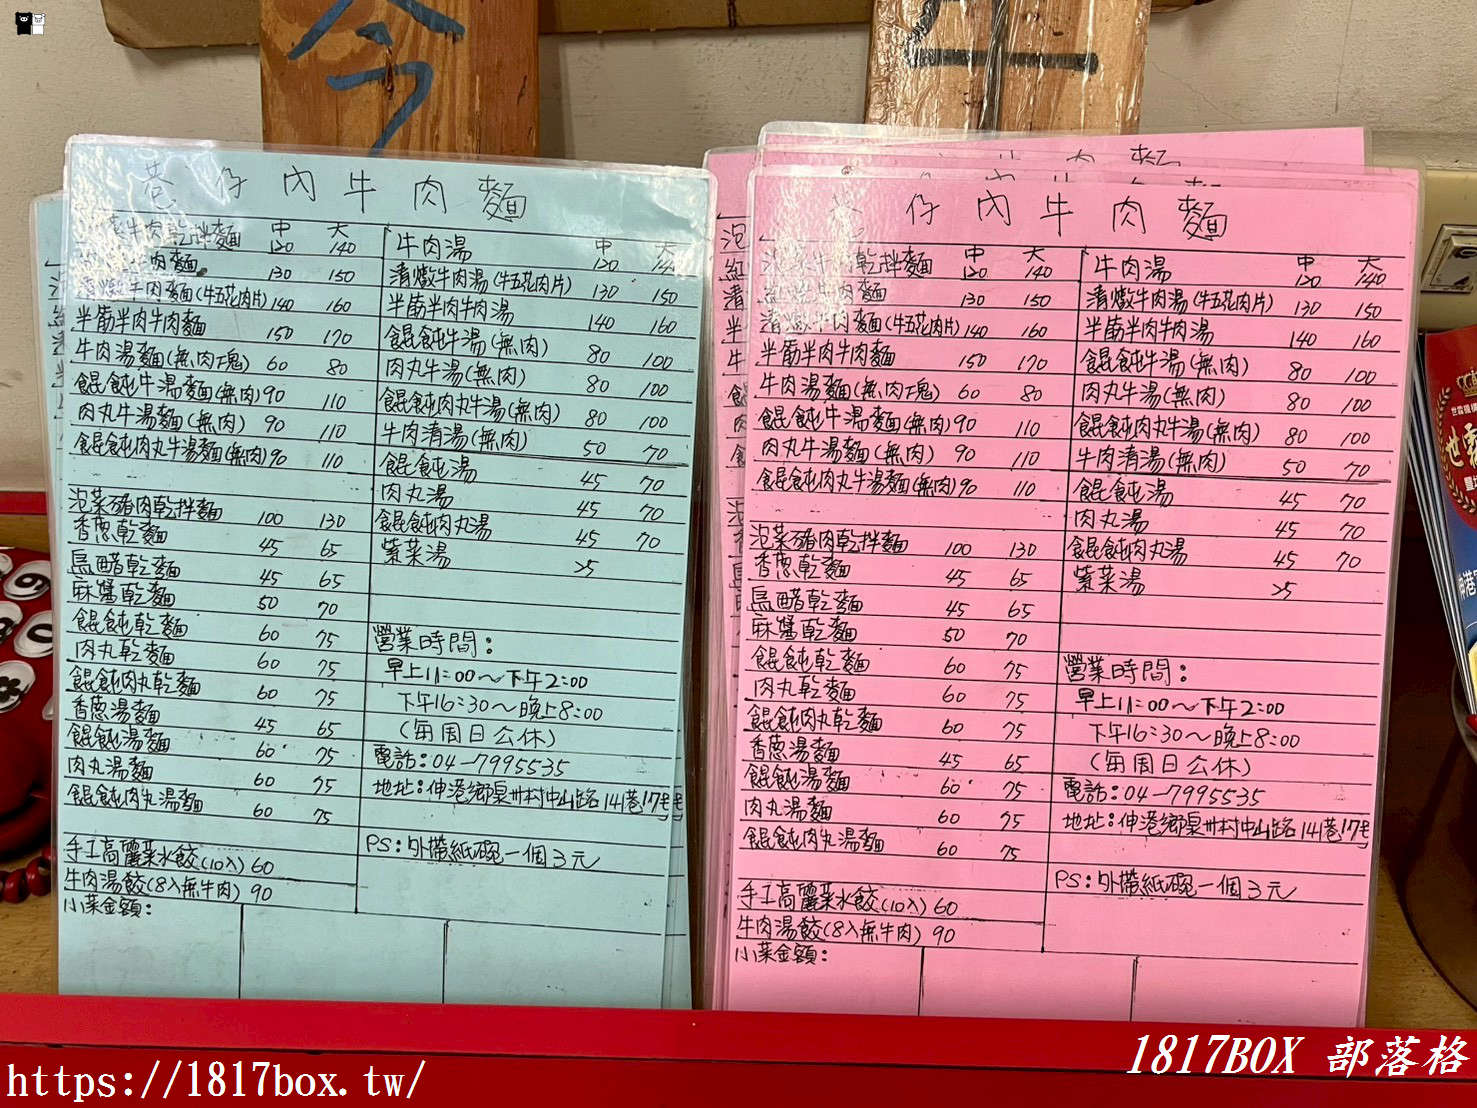 今
巷仔內牛肉麵
牛肉乾拌麵 中120 大140
肉麵 130 150
清燉牛肉麵(牛五花肉片) 140 160
半筋半肉牛肉麵 150 170
牛肉湯麵(無肉塊) 60 80
餛飩牛湯麵(無肉) 90 110
肉丸牛湯麵(無肉) 90 110
餛飩肉丸牛湯麵(無肉) 90 110
泡菜豬肉乾拌麵 100 130
香蔥乾麵 45 65
烏醋乾麵 45 65
麻醬乾麵 50 70
餛飩乾麵 60 75
肉丸乾麵 60 75
餛飩肉丸乾麵 60 75
香蔥湯麵 45 65
餛飩湯麵 60 75
肉丸湯麵 60 75
餛飩肉丸湯麵 60 75
手工高麗菜水餃(10入) 60
牛肉湯餃(8入無牛肉) 90
小菜金額:
牛肉湯 中120 大140
清燉牛肉湯(牛五花肉片) 130 150
半筋半肉牛肉湯 140 160
餛飩牛湯(無肉) 80 100
肉丸牛湯(無肉) 80 100
餛飩肉丸牛湯(無肉) 80 100
牛肉清湯(無肉) 50 70
餛飩湯 45 70
肉丸湯 45 70
餛飩肉丸湯 45 70
紫菜湯 25
營業時間:
早上11:00～下午2:00
下午16:30～晚上8:00
(每周日公休)
電話:04-7995535
地址:伸港鄉泉州村中山路141巷17号
PS:外帶紙碗一個3元
巷仔內牛肉麵
泡菜牛肉乾拌麵 中120 大140
紅燒牛肉麵 130 150
清燉牛肉麵(牛五花肉片) 140 160
半筋半肉牛肉麵 150 170
牛肉湯麵(無肉塊) 60 80
餛飩牛湯麵(無肉) 90 110
肉丸牛湯麵(無肉) 90 110
餛飩肉丸牛湯麵(無肉) 90 110
泡菜豬肉乾拌麵 100 130
香蔥乾麵 45 65
烏醋乾麵 45 65
麻醬乾麵 50 70
餛飩乾麵 60 75
肉丸乾麵 60 75
餛飩肉丸乾麵 60 75
香蔥湯麵 45 65
餛飩湯麵 60 75
肉丸湯麵 60 75
餛飩肉丸湯麵 60 75
手工高麗菜水餃(10入) 60
牛肉湯餃(8入無牛肉) 90
小菜金額:
牛肉湯 中120 大140
清燉牛肉湯(牛五花肉片) 130 150
半筋半肉牛肉湯 140 160
餛飩牛湯(無肉) 80 100
肉丸牛湯(無肉) 80 100
餛飩肉丸牛湯(無肉) 80 100
牛肉清湯(無肉) 50 70
餛飩湯 45 70
肉丸湯 45 70
餛飩肉丸湯 45 70
紫菜湯 25
營業時間:
早上11:00～下午2:00
下午16:30～晚上8:00
(每周日公休)
電話:04-7995535
地址:伸港鄉泉州村中山路141巷17号
PS:外帶紙碗一個3元
https://1817box.tw/
1817BOX 部落格